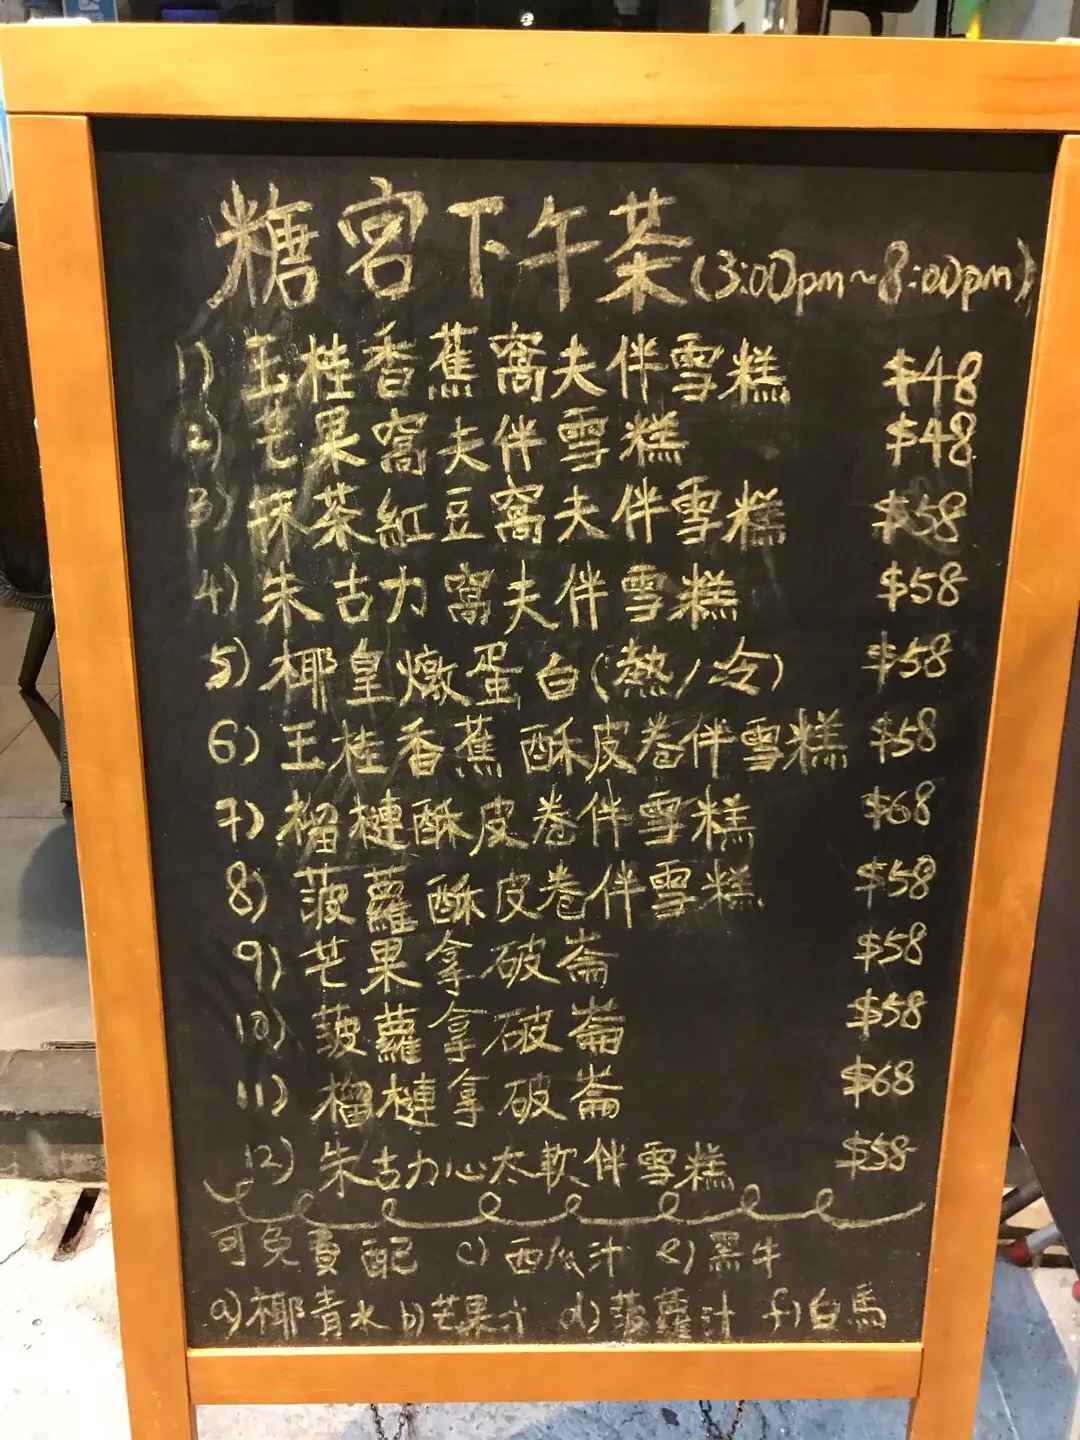 糖客下午茶(3:00pm~8:00pm)
1) 玉桂香蕉窩夫伴雪糕 $48
2) 芒果窩夫伴雪糕 $48
3) 抹茶紅豆窩夫伴雪糕 $58
4) 朱古力窩夫伴雪糕 $58
5) 椰皇燉蛋白(熱/冷) $58
6) 玉桂香蕉酥皮卷伴雪糕 $58
7) 榴槤酥皮卷伴雪糕 $68
8) 菠蘿酥皮卷伴雪糕 $58
9) 芒果拿破崙 $58
10) 菠蘿拿破崙 $58
11) 榴槤拿破崙 $68
12) 朱古力心太軟伴雪糕 $58
可免費配 c) 西瓜汁 e) 黑牛
a) 椰青水 b) 芒果汁 d) 菠蘿汁 f) 白馬